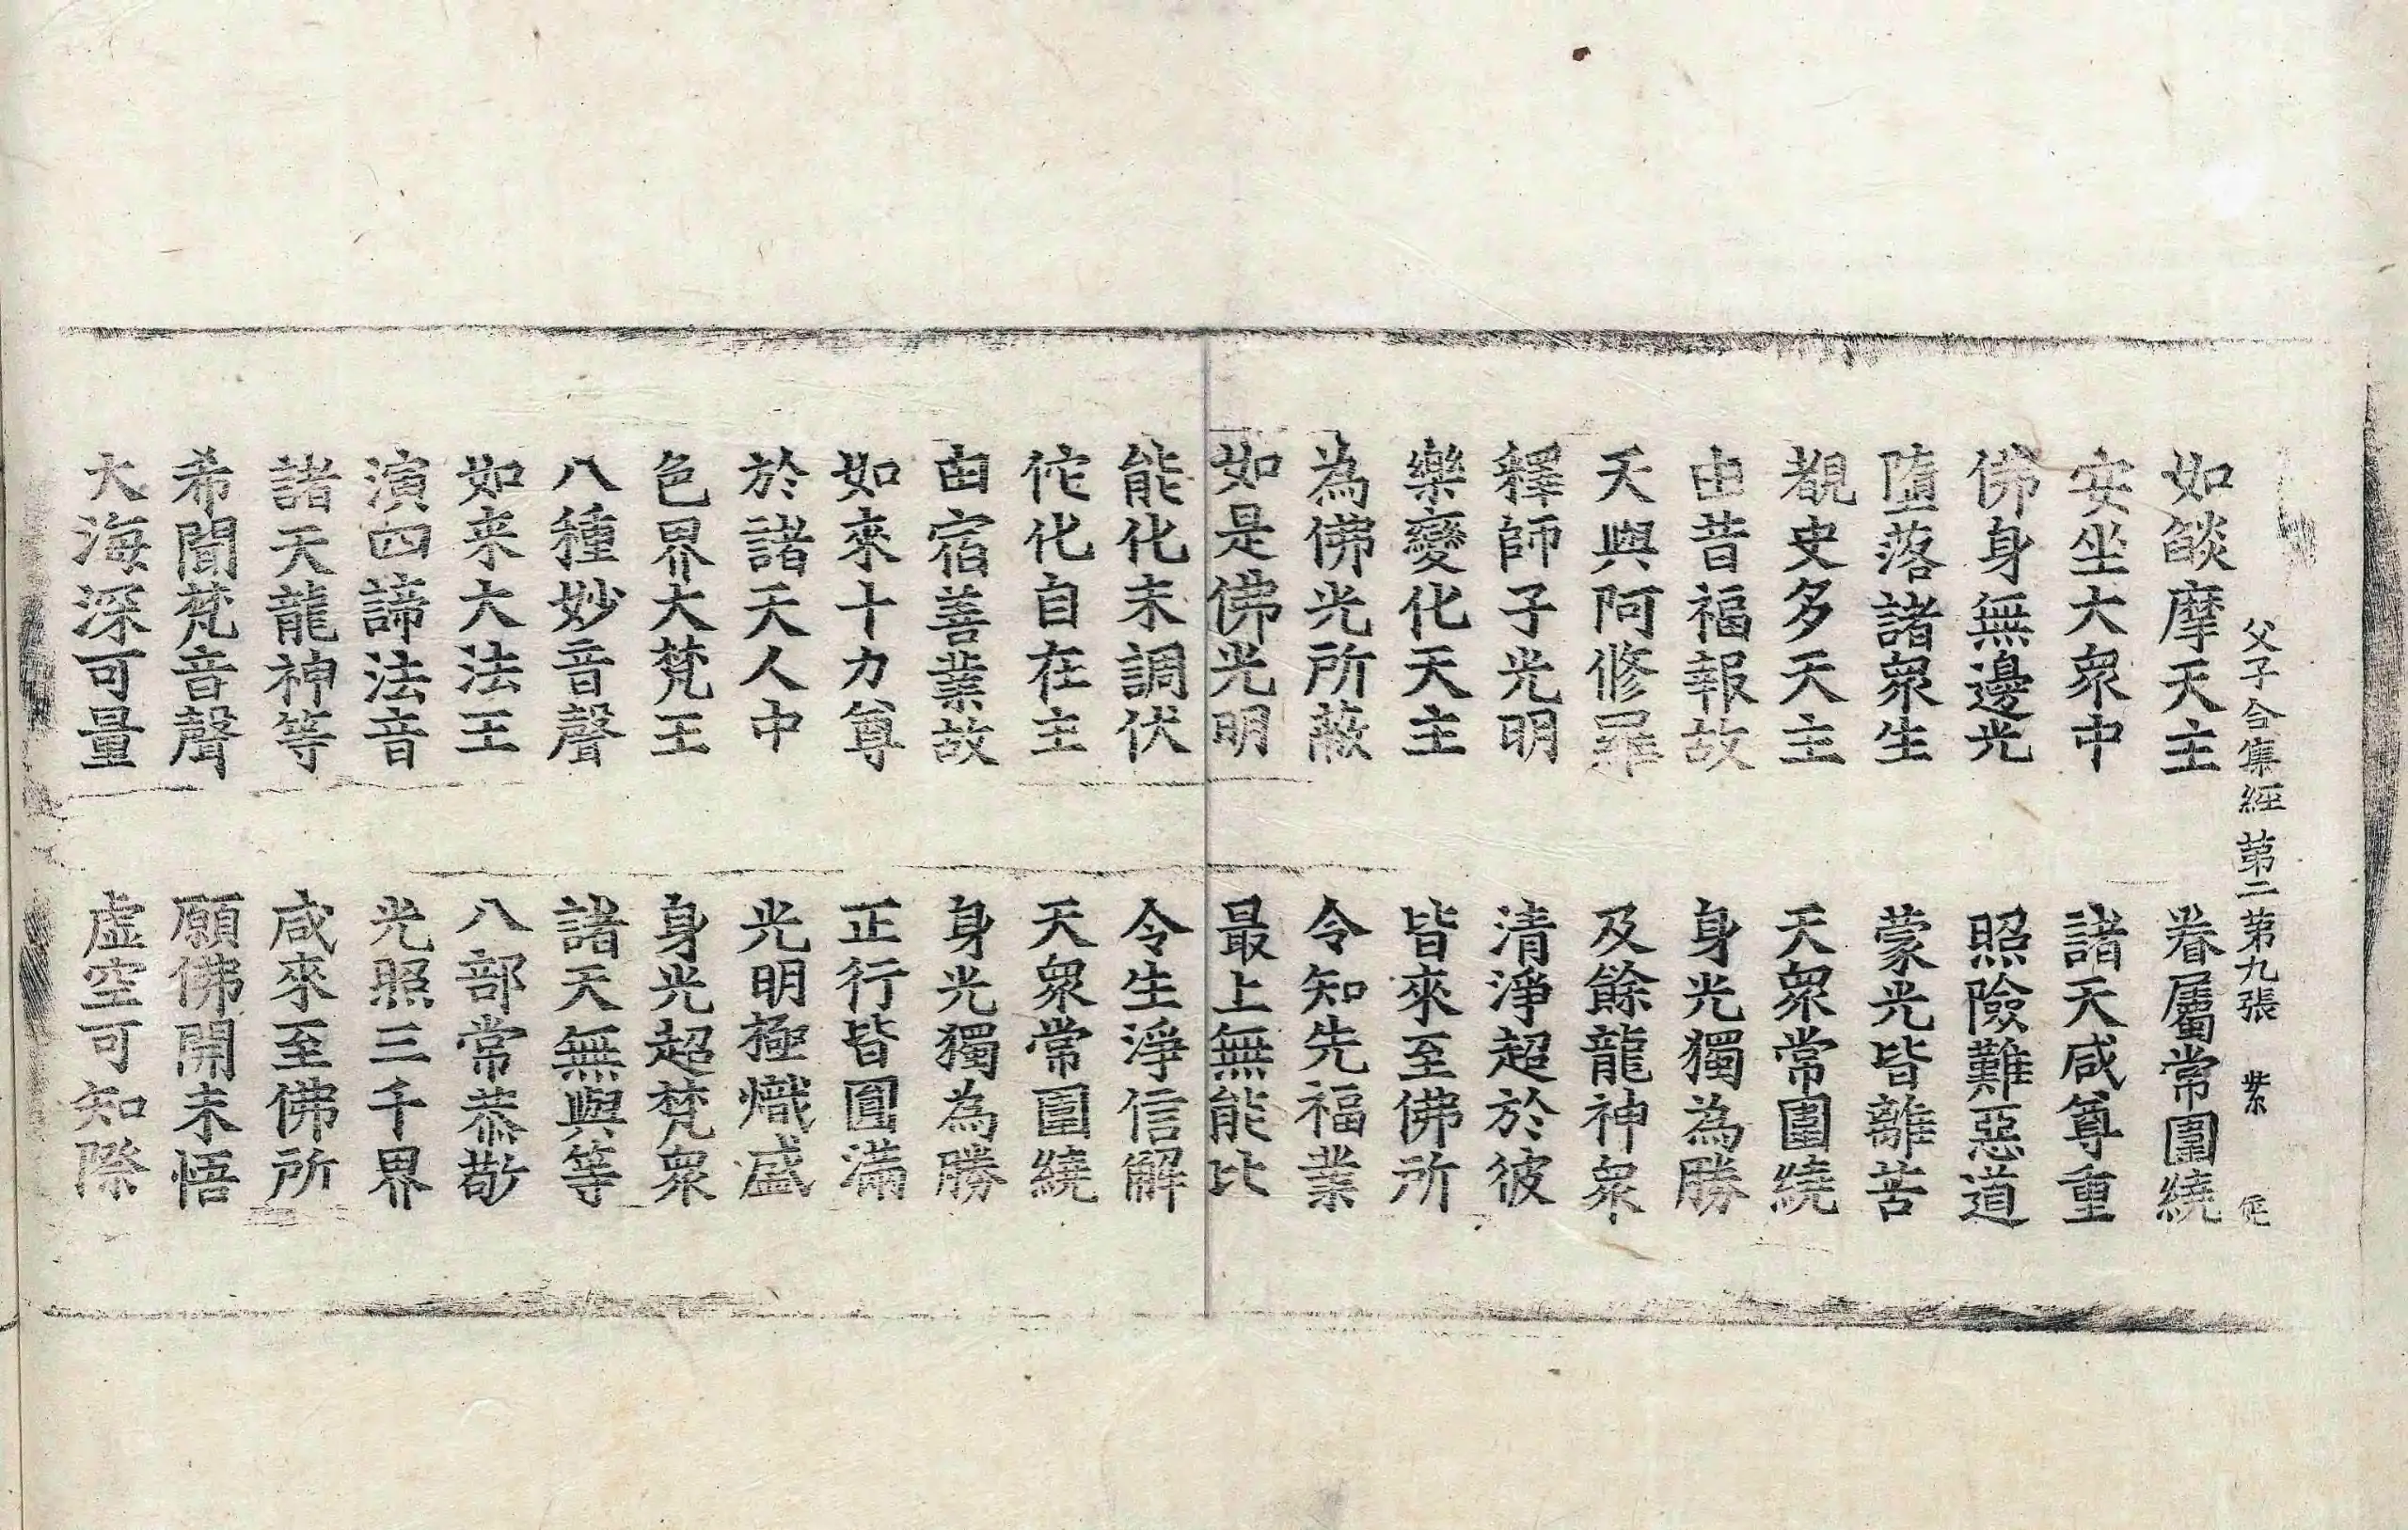 父子合集經 第二 第九張 紫
如燄摩天主 眷屬常圍繞
安坐大衆中 諸天咸尊重
佛身無邊光 照險難惡道
墮落諸衆生 蒙光皆離苦
覩史多天主 天衆常圍繞
由昔福報故 身光獨為勝
天與阿修羅 及餘龍神衆
釋師子光明 清淨超於彼
樂變化天主 皆來至佛所
為佛光所蔽 令知先福業
如是佛光明 最上無能比
能化未調伏 令生淨信解
佗化自在主 天衆常圍繞
由宿善業故 身光獨為勝
如來十力尊 正行皆圓滿
於諸天人中 光明極熾盛
色界大梵王 身光超梵衆
八種妙音聲 諸天無與等
如来大法王 八部常恭敬
演四諦法音 光照三千界
諸天龍神等 咸來至佛所
希聞梵音聲 願佛開未悟
大海深可量 虛空可知際